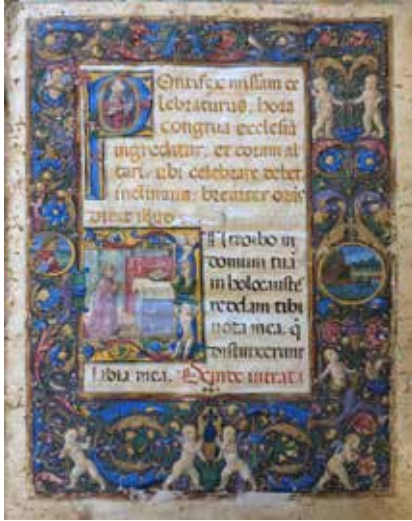 Pontifex missam ce
lebraturus, hora
congrua ecclesiā
ingreditur, et coram al
tari, ubi celebrare debet
inclinans breviter
Introibo in
domum tuā
in holocaustis
reddam tibi
vota mea, q̄
distinxerunt
labia mea. Deinde intrat